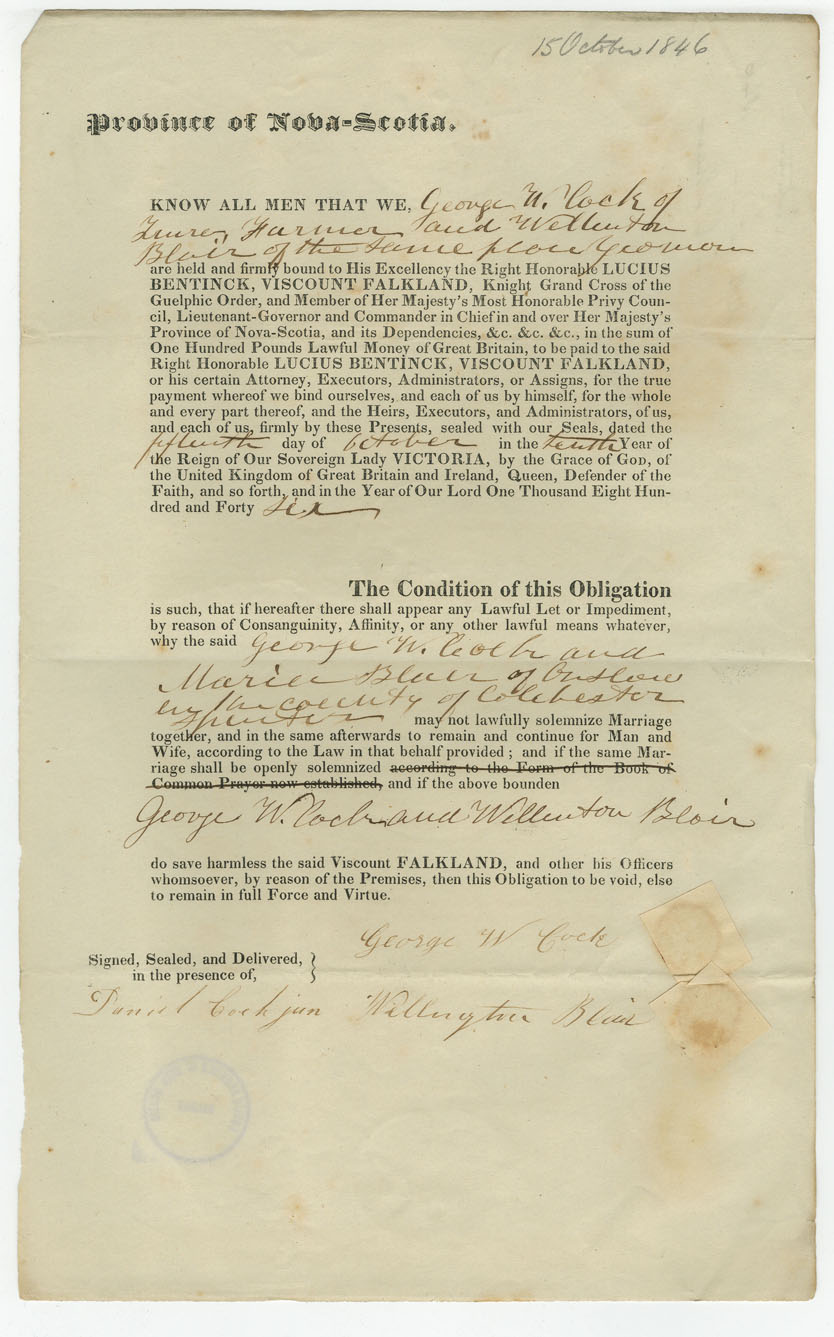 15 October 1846
Province of Nova-Scotia.
KNOW ALL MEN THAT WE, George W. Cock of
Truro, Farmer and Wellenton
Blair of the same place Yeoman
are held and firmly bound to His Excellency the Right Honorable LUCIUS
BENTINCK, VISCOUNT FALKLAND, Knight Grand Cross of the
Guelphic Order, and Member of Her Majesty's Most Honorable Privy Coun-
cil, Lieutenant-Governor and Commander in Chief in and over Her Majesty's
Province of Nova-Scotia, and its Dependencies, &c. &c. &c., in the sum of
One Hundred Pounds Lawful Money of Great Britain, to be paid to the said
Right Honorable LUCIUS BENTINCK, VISCOUNT FALKLAND,
or his certain Attorney, Executors, Administrators, or Assigns, for the true
payment whereof we bind ourselves, and each of us by himself, for the whole
and every part thereof, and the Heirs, Executors, and Administrators, of us,
and each of us, firmly by these Presents, sealed with our Seals, dated the
fifteenth day of October in the tenth Year of
the Reign of Our Sovereign Lady VICTORIA, by the Grace of GOD, of
the United Kingdom of Great Britain and Ireland, Queen, Defender of the
Faith, and so forth, and in the Year of Our Lord One Thousand Eight Hun-
dred and Forty six
The Condition of this Obligation
is such, that if hereafter there shall appear any Lawful Let or Impediment,
by reason of Consanguinity, Affinity, or any other lawful means whatever,
why the said George W. Cock and
Maria Blair of Onslow
in the county of Colchester
Spinster may not lawfully solemnize Marriage
together, and in the same afterwards to remain and continue for Man and
Wife, according to the Law in that behalf provided ; and if the same Mar-
riage shall be openly solemnized according to the Form of the Book of
Common Prayer now established, and if the above bounden
George W. Cock and Wellenton Blair
do save harmless the said Viscount FALKLAND, and other his Officers
whomsoever, by reason of the Premises, then this Obligation to be void, else
to remain in full Force and Virtue.
George W Cock
Signed, Sealed, and Delivered,
in the presence of,
Daniel Cock jun Wellington Blair